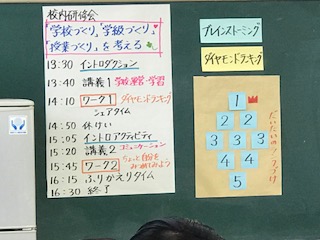 校内研修会
「学校づくり」「学級づくり」
「授業づくり」を考える
13:30 イントロダクション
13:40 講義1 学校経営・学習
14:10 ワーク1 ダイヤモンドランキング
シェアタイム
14:50 休けい
15:05 イントロアクティビティ
15:20 講義2 コミュニケーション
15:45 ワーク2 ちょっと自分をみつめてみよう
16:15 ふりかえりタイム
16:30 終了
ブレインストーミング
ダイヤモンドランキング
1
2 2
3 3 3
4 4
5